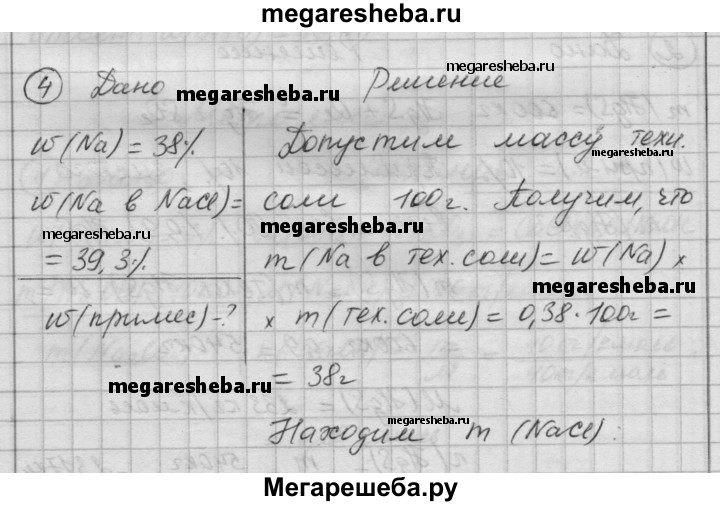 megaresheba.ru
4 Дано Решение
megaresheba.ru
megaresheba.ru
w(Na) = 38% Допустим массу техн.
megaresheba.ru
w(Na в NaCl)= соли 100г. Получим, что
megaresheba.ru
megaresheba.ru
= 39,3% m(Na в тех.соли)= w(Na) ×
megaresheba.ru
w(примес)-? × m(тех.соли) = 0,38·100г =
megaresheba.ru
= 38г
megaresheba.ru
Находим m (NaCl):
Мегарешеба.ру